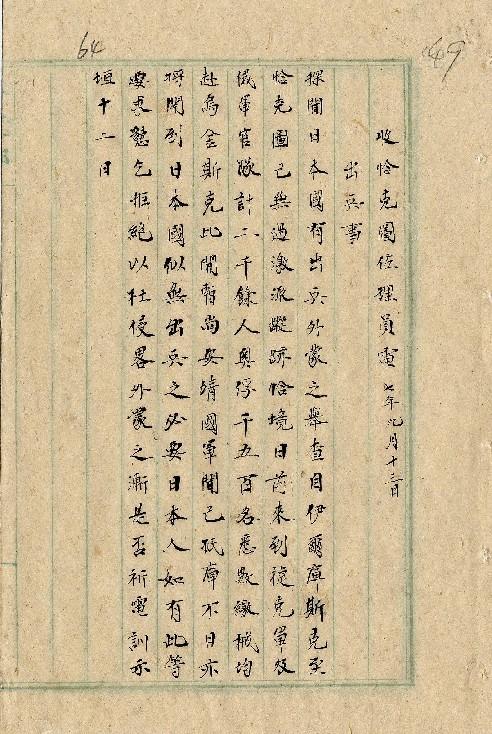 49
64
收恰克圖佐理員電 七年九月十三日
出兵事
探聞日本國有出兵外蒙之舉查自伊爾庫斯克至
恰克圖已無過激派蹤跡恰境日前來到捷克軍及
俄軍官隊計二千餘人奧俘千五百名悉數繳械均
赴烏金斯克此間暫尚安靖國軍聞已抵庫不日亦
將開到日本國似無出兵之必要日本人如有此等
要求懇乞拒絕以杜侵畧外蒙之漸是否祈電訓示
垣十二日